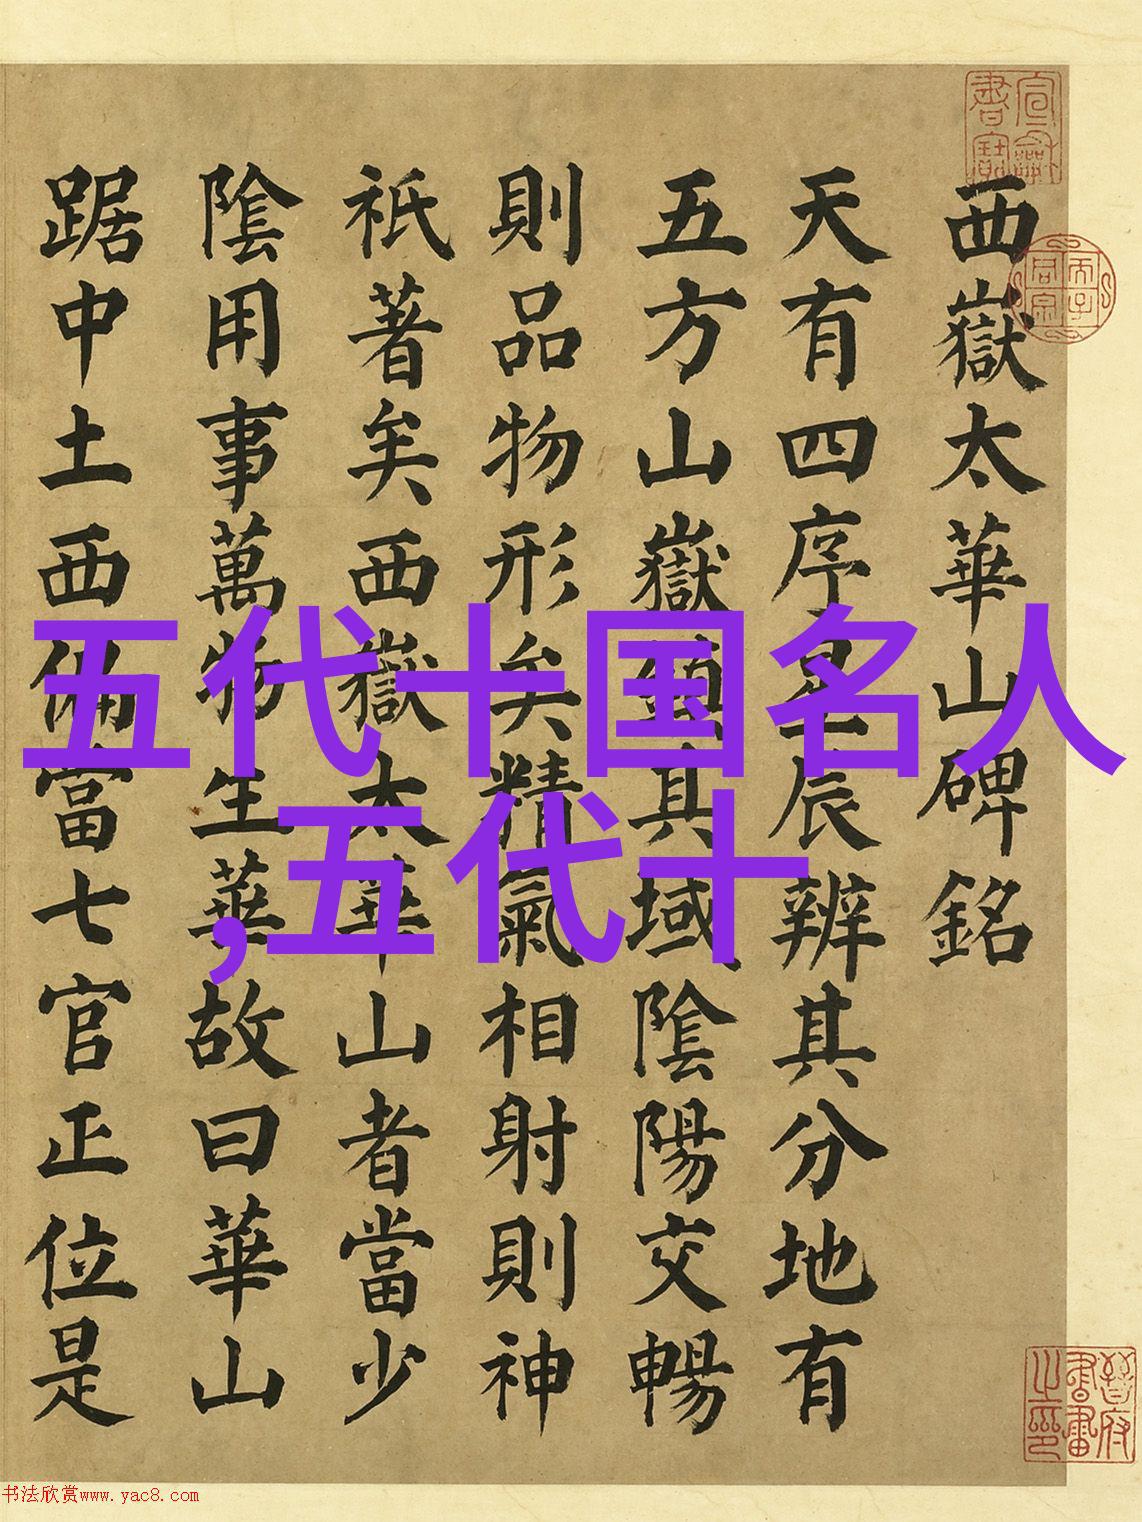 西嶽太華山碑銘
天有四序星辰辨其分地有
五方山嶽鎮其域陰陽交暢
則品物形矣精氣相射則神
祇著矣西嶽太華山者當少
陰用事萬物生華故曰華山
踞中土西偏當七官正位是
五代十国名人
,五代十
晉府書畫之印
书法欣赏www.yac8.com